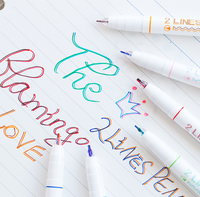 The
Flamingo
LOVE
2LINES PEN
2 LINES
2 LINE